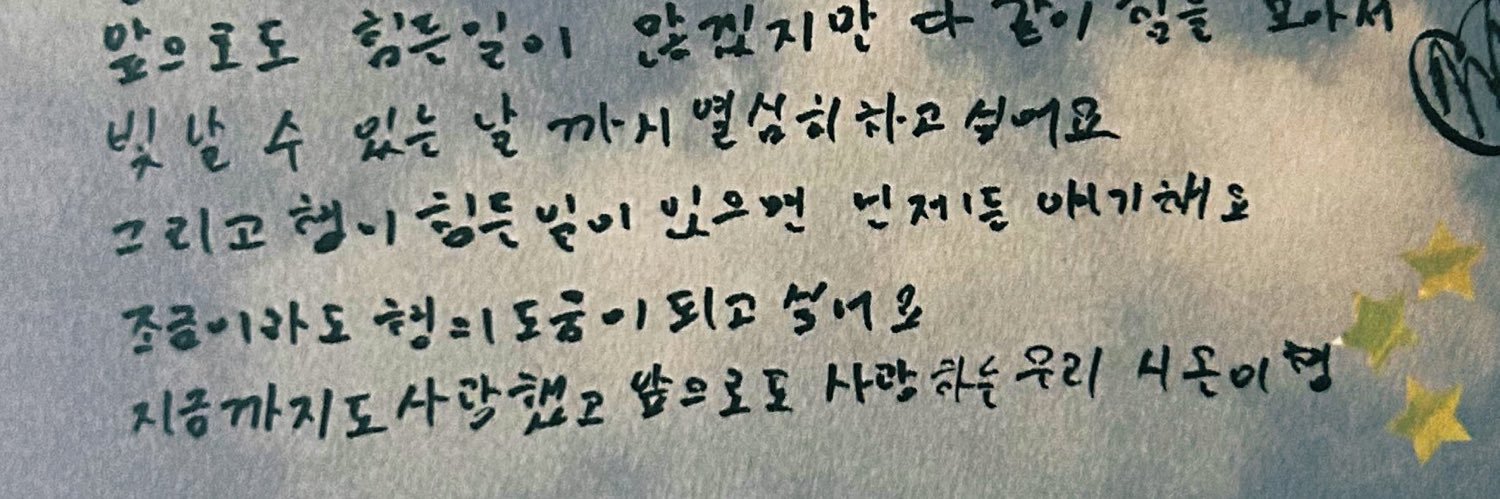 앞으로도 힘든일이 많겠지만 다 같이 힘을 모아서
빛날 수 있는 날 까지 열심히하고 싶어요
그리고 형이 힘든 일이 있으면 언제든 얘기해요
조금이라도 형의 도움이 되고 싶어요
지금까지도 사랑했고 앞으로도 사랑하는 우리 시온이형